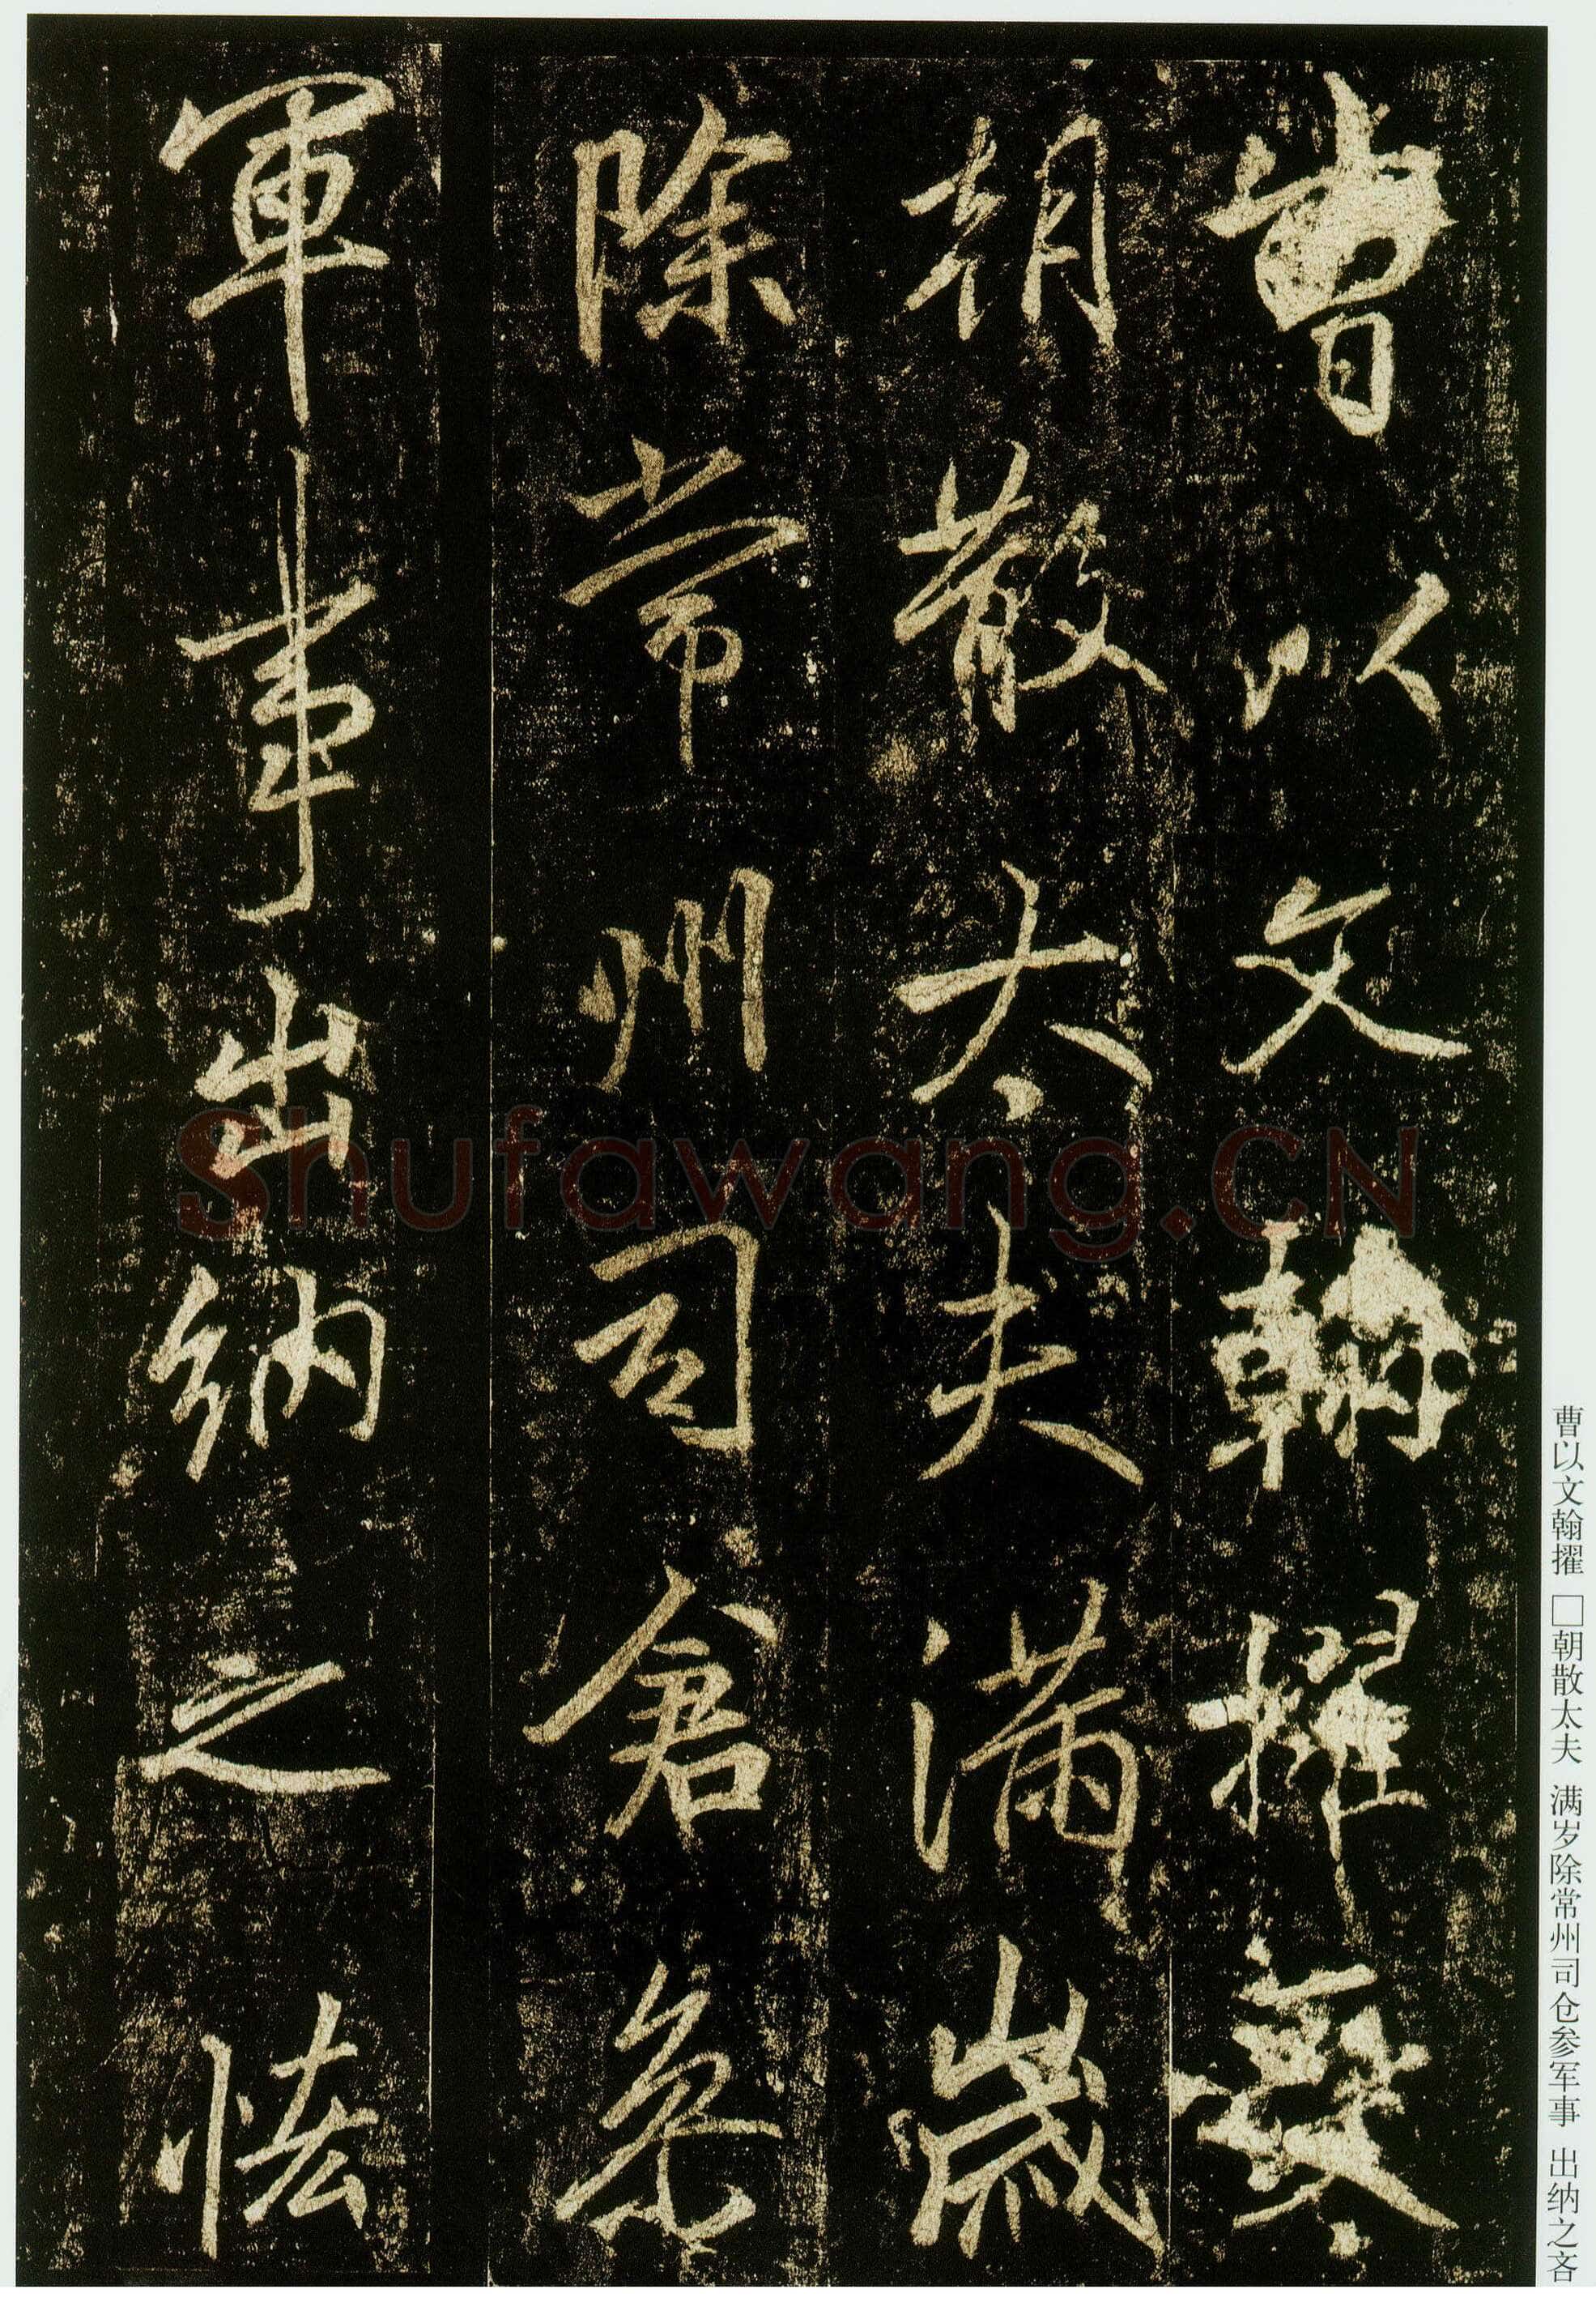 曹以文翰擢
朝散太夫滿歲
除常州司倉參
軍事出納之恡
曹以文翰擢 □朝散太夫 满岁除常州司仓参军事 出纳之吝
Shufawang.CN